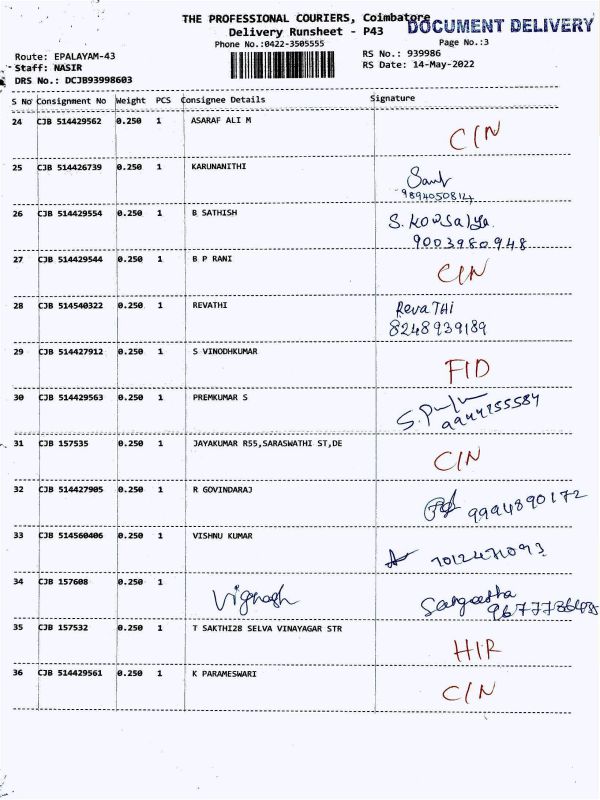 THE PROFESSIONAL COURIERS, Coimbatore
DOCUMENT DELIVERY
Delivery Runsheet - P43
Phone No.:0422-3505555
Page No.:3
Route: EPALAYAM-43
RS No.: 939986
Staff: NASIR
RS Date: 14-May-2022
DRS No.: DCJB93998603
S No Consignment No Weight PCS Consignee Details Signature
24 CJB 514429562 0.250 1 ASARAF ALI M C/N
25 CJB 514426739 0.250 1 KARUNANITHI
9894050814
26 CJB 514429554 0.250 1 B SATHISH S. Kowsalya.
9003980948
27 CJB 514429544 0.250 1 B P RANI C/N
28 CJB 514540322 0.250 1 REVATHI RevaTHI
8248939189
29 CJB 514427912 0.250 1 S VINODHKUMAR FID
30 CJB 514429563 0.250 1 PREMKUMAR S
9944255584
31 CJB 157535 0.250 1 JAYAKUMAR R55,SARASWATHI ST,DE C/N
32 CJB 514427905 0.250 1 R GOVINDARAJ 9994890172
33 CJB 514560406 0.250 1 VISHNU KUMAR 7012471093
34 CJB 157608 0.250 1 Vignesh Sangeetha
35 CJB 157532 0.250 1 T SAKTHI28 SELVA VINAYAGAR STR HIR
36 CJB 514429561 0.250 1 K PARAMESWARI C/N